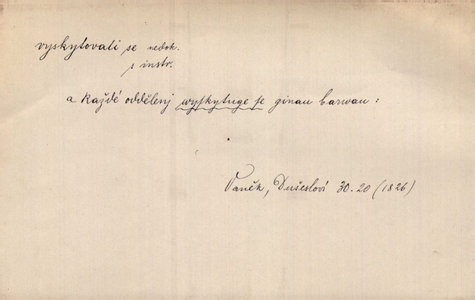 vyskytovati se nedok.
s instr.
a každé oddělenj wyskytuge se ginau barwau:
Vaněk, Dušesloví 30.20 (1826)